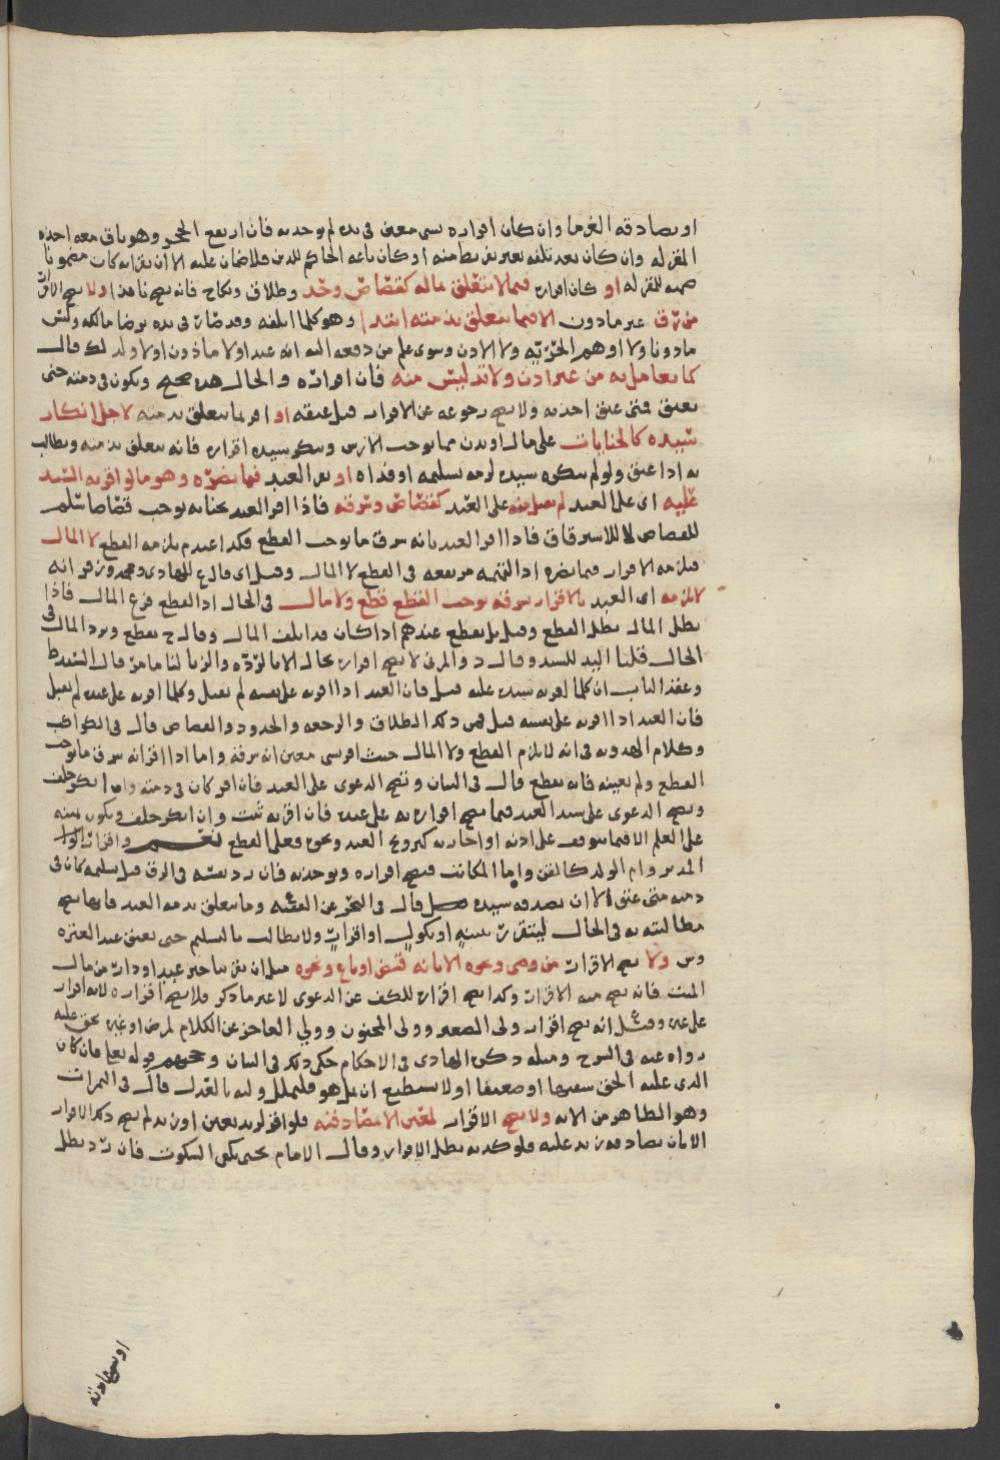 او يصادقه الغرما وان كان اقراره بشي معين في يده لم يوخذ به فان ارتفع الحجر وهو باق معه اخذه
المقر له وان كان بعد تلفه بغير تفريط منه او كان باعه الحاكم للدين فلا ضمان عليه الا ان يقر انه كان مضمونا
للمقر له او كان اقراره فيما لا يتعلق بماله كقصاص وحد وطلاق ونكاح فانه يصح نافذا ولا يصح الاقرار
من رق غير ماذون الا فيما يتعلق بذمته ابتداء وهو كلما اتلفه وقد صار في يده برضا مالكه وليس
ماذونا ولا اوهم الحرية ولا الاذن وسوى علم من دفعه اليه انه عبد او لا ماذون او لا ولذلك قال
كما يعامل به من غير اذن ولا تدليس منه فان اقراره والحال هذه صحيح ويكون في ذمته حتى
يعتق فمتى عتق اخذ به ولا يصح رجوعه عن الاقرار قبل عتقه او اقر بما يتعلق بذمته لاجل انكار
سيده كالجنايات على مال او بدن مما يوجب الارش وينكر سيده اقراره فانه يتعلق بذمته ويطالب
به اذا عتق ولو لم ينكره سيده لزمه تسليمه او فداه او يقر العبد فيما يضره وهو ما لو اقر به السيد
عليه اي على العبد لم يقبل منه على العبد كقصاص وسرقة فاذا اقر العبد بجناية توجب قصاصا سلم
للقصاص لا للاسترقاق فاذا اقر العبد بانه سرق ما يوجب القطع فكذا عندم يلزمه القطع لا المال
فيلزمه الاقرار فيما يضره اذ التهمة مرتفعة في القطع لا المال وقيل اي قال ع للهادي ومحمد وزفر انه
لا يلزمه اي العبد بالاقرار بسرقة توجب القطع قطع ولا مال في الحال اذ القطع فرع المال فاذا
بطل المال بطل القطع وقيل بل يقطع عندهم اذا كان قد اتلف المال وقال ح يقطع ويرد المال في
الحال قلنا اليد للسيد وقال د والمزني لا يصح اقراره بحال الا بالردة والزنا لنا ما مر قال الشيخ ط
وعقد الباب ان كلما اقر به سيده عليه قبل فان العبد اذا اقر به على نفسه لم يقبل وكلما اقر به على عبده لم يقبل
فان العبد اذا اقر به على نفسه قبل فمن ذلك الطلاق والرجعه والحدود والقصاص قال في الكواكب
وكلام الهدويه في انه لا يلزم القطع ولا المال حيث اقر بشي معين انه سرقه واما اذا اقر انه سرق ما يوجب
القطع ولم يعينه فانه يقطع قال في البيان وتصح الدعوى على العبد فان اقر كان في ذمته وان انكر حلف
وتصح الدعوى على سيد العبد فيما يصح اقراره به على عبده فان اقر به ثبت وان انكر حلف ويكون يمينه
على العلم الا فيما يتوقف على اذنه او اجازته كبيروع العبد ونحوه فعلى القطع نعم واقرار
المدبر وام الولد كالقن واما المكاتب فيصح اقراره ويوخذ به فان رد نفسه في الرق قبل تسليمه كان في
ذمته متى عتق الا ان يصدقه سيده قيل قال في البحر عن الغيث وما يتعلق بذمه العبد فانها تصح
مطالبته به في الحال ليتقرر ببينة او نكول او اقرار ولا يطالب بالتسليم حتى يعتق عند العتره
وش ولا يصح الاقرار من وصي ونحوه الا بانه قبض او باع ونحوه مثل ان يقر بتاخير عبد او دار من مال
الميت فانه يصح منه الاقرار وكذا يصح اقراره للكف عن الدعوى لا غير ما ذكر فلا يصح اقراره لانه اقرار
على غيره وقيل انه يصح اقرار ولي الصغير وولي المجنون وولي العاجز عن الكلام لمرض او غيره بحق عليه
رواه عنه في الشرح ومثله ذكره الهادي في الاحكام حكى ذلك في البيان وحجتهم قوله تعلى فان كان
الذي عليه الحق سفيها او ضعيفا او لا يستطيع ان يمل هو فليملل وليه بالعدل قال في الثمرات
وهو الظاهر من الايه ولا يصح الاقرار لمعين الا بمصادقته فلو اقر لزيد بعين او دين لم يصح ذلك الاقرار
الا بان يصادقه زيد عليه فلو كذبه بطل الاقرار وقال الامام يحيى يكفي السكوت فان رد بطل
او سع